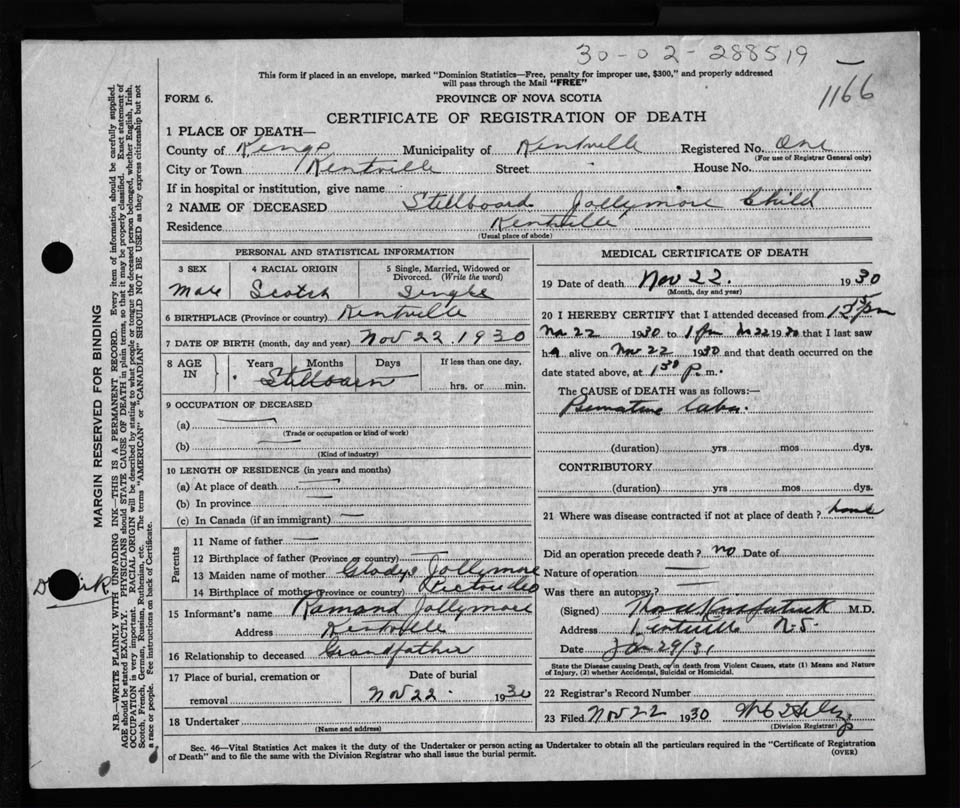 30-02-288519
1166
This form if placed in an envelope, marked "Dominion Statistics—Free, penalty for improper use, $300," and properly addressed
will pass through the Mail "FREE"
FORM 6.
PROVINCE OF NOVA SCOTIA
CERTIFICATE OF REGISTRATION OF DEATH
1 PLACE OF DEATH—
County of Kings Municipality of Kentville Registered No. One
(For use of Registrar General only)
City or Town Kentville Street House No.
If in hospital or institution, give name
2 NAME OF DECEASED Stillboard Jollymore Child
Residence Kentville
(Usual place of abode)
PERSONAL AND STATISTICAL INFORMATION
3 SEX 4 RACIAL ORIGIN 5 Single, Married, Widowed or
Divorced. (Write the word)
Male Scotch Single
6 BIRTHPLACE (Province or country) Kentville
7 DATE OF BIRTH (month, day and year) Nov 22 1930
8 AGE IN Years Months Days If less than one day,
Stillborn
hrs. or min.
9 OCCUPATION OF DECEASED
(a)
(Trade or occupation or kind of work)
(b)
(Kind of industry)
10 LENGTH OF RESIDENCE (in years and months)
(a) At place of death
(b) In province
(c) In Canada (if an immigrant)
Parents
11 Name of father
12 Birthplace of father (Province or country)
13 Maiden name of mother Gladys Jollymore
14 Birthplace of mother (Province or country)
15 Informant's name Ramond Jollymore
Address Kentville
16 Relationship to deceased Grandfather
17 Place of burial, cremation or
removal
Date of burial
Nov 22 1930
18 Undertaker
(Name and address)
MEDICAL CERTIFICATE OF DEATH
19 Date of death Nov 22. 1930
(Month, day and year)
20 I HEREBY CERTIFY that I attended deceased from
Nov 22 1930 to 1 pm 22 1930 that I last saw
h alive on Nov 22 1930 and that death occurred on
date stated above, at 1 30 P.m.
The CAUSE of DEATH was as follows:—
Premature labor.
(duration) yrs mos dys.
CONTRIBUTORY
(duration) yrs mos dys.
21 Where was disease contracted if not at place of death? home
Did an operation precede death? no Date of
Nature of operation
Was there an autopsy?
(Signed) M.D.
Address Kentville N.S.
Date Jan 29/31
State the Disease causing Death, or in death from Violent Causes, state (1) Means and Nature
of Injury, (2) whether Accidental, Suicidal or Homicidal.
22 Registrar's Record Number
23 Filed Nov 22 1930
(Division Registrar)
Sec. 46—Vital Statistics Act makes it the duty of the Undertaker or person acting as Undertaker to obtain all the particulars required in the "Certificate of Registration
of Death" and to file the same with the Division Registrar who shall issue the burial permit.
(OVER)
MARGIN RESERVED FOR BINDING
N.B.—WRITE PLAINLY WITH UNFADING INK—THIS IS A PERMANENT RECORD. Every item of information should be carefully supplied.
AGE should be stated EXACTLY. PHYSICIANS should STATE CAUSE OF DEATH in plain terms, so that it may be properly classified. Exact statement of
OCCUPATION is very important. RACIAL ORIGIN will be described by stating to what people or tongue the deceased person belonged, whether English, Irish,
Scotch, French, German, Russian, Ruthenian, etc. The terms "AMERICAN" or "CANADIAN" SHOULD NOT BE USED as they express citizenship but not
a race or people. See instructions on back of Certificate.